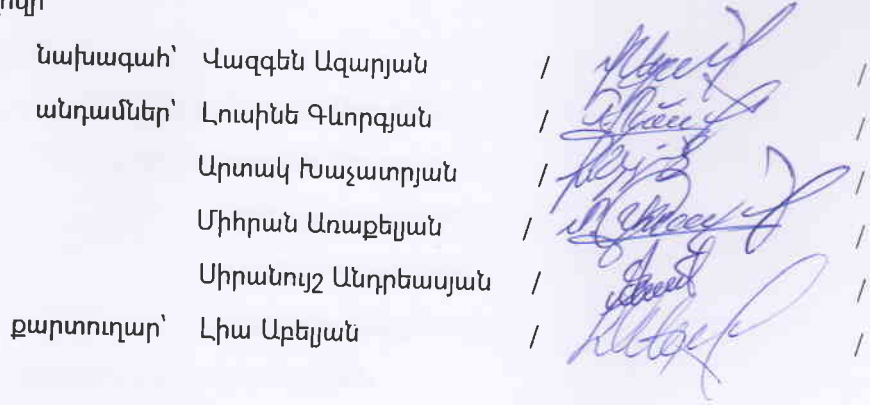 նախագահ՝ Վազգեն Ազարյան / /
անդամներ՝ Լուսինե Գևորգյան / /
Արտակ Խաչատրյան / /
Միհրան Առաքելյան / /
Սիրանույշ Անդրեասյան / /
քարտուղար՝ Լիա Աբելյան / /